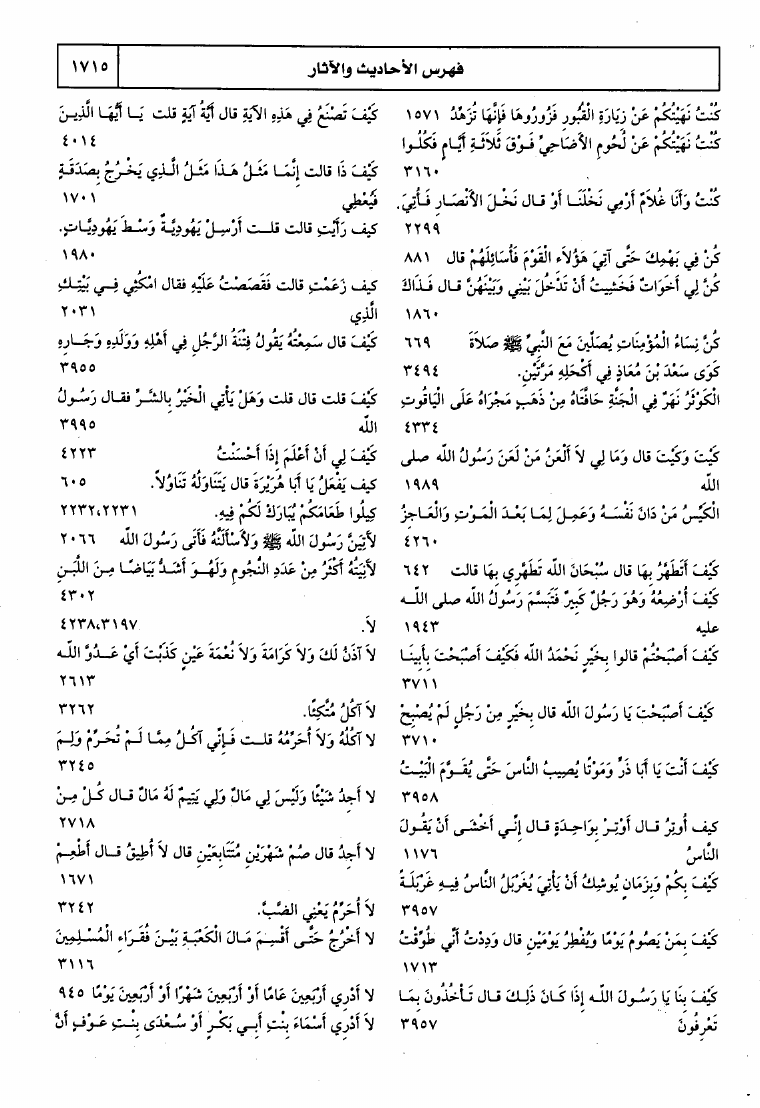 فهرس الأحاديث والآثار
١٧١٥
كُنْتُ نَهَيْتُكُمْ عَنْ زِيَارَةِ الْقُبُورِ فَزُورُوهَا فَإِنَّهَا تُزَهِّدُ ١٥٧١
كُنْتُ نَهَيْتُكُمْ عَنْ لُحُومِ الأَضَاحِيِّ فَوْقَ ثَلاَثَةِ أَيَّامٍ فَكُلُوا
٣١٦٠
كُنْتُ وَأَنَا غُلاَمٌ أَرْمِي نَخْلَنَا أَوْ قال نَخْلَ الأَنْصَارِ فَأُتِيَ.
٢٢٩٩
كُنْ فِي بَهْمِكَ حَتَّى آتِيَ هَؤُلاَءِ الْقَوْمَ فَأُسَائِلَهُمْ قال ٨٨١
كُنَّ لِي أَخَوَاتٌ فَخَشِيتُ أَنْ تَدْخُلَ بَيْنِي وَبَيْنَهُنَّ قال فَذَاكَ
١٨٦٠
كُنَّ نِسَاءُ الْمُؤْمِنَاتِ يُصَلِّينَ مَعَ النَّبِيِّ ﷺ صَلاَةَ ٦٦٩
كَوَى سَعْدَ بْنَ مُعَاذٍ فِي أَكْحَلِهِ مَرَّتَيْنِ. ٣٤٩٤
الْكَوْثَرُ نَهَرٌ فِي الْجَنَّةِ حَافَّتَاهُ مِنْ ذَهَبٍ مَجْرَاهُ عَلَى الْيَاقُوتِ
٤٣٣٤
كَيْتَ وَكَيْتَ قال وَمَا لِي لاَ أَلْعَنُ مَنْ لَعَنَ رَسُولُ اللَّه صلى
اللَّه ١٩٨٩
الْكَيِّسُ مَنْ دَانَ نَفْسَهُ وَعَمِلَ لِمَا بَعْدَ الْمَوْتِ وَالْعَاجِزُ
٤٢٦٠
كَيْفَ أَتَطَهَّرُ بِهَا قال سُبْحَانَ اللَّه تَطَهَّرِي بِهَا قالت ٦٤٢
كَيْفَ أُرْضِعُهُ وَهُوَ رَجُلٌ كَبِيرٌ فَتَبَسَّمَ رَسُولُ اللَّه صلى اللَّه
عليه ١٩٤٣
كَيْفَ أَصْبَحْتُمْ قالوا بِخَيْرٍ نَحْمَدُ اللَّه فَكَيْفَ أَصْبَحْتَ بِأَبِينَا
٣٧١١
كَيْفَ أَصْبَحْتَ يَا رَسُولَ اللَّه قال بِخَيْرٍ مِنْ رَجُلٍ لَمْ يُصْبِحْ
٣٧١٠
كَيْفَ أَنْتَ يَا أَبَا ذَرٍّ وَمَوْتًا يُصِيبُ النَّاسَ حَتَّى يُقَوَّمَ الْبَيْتُ
٣٩٥٨
كيف أُوتِرُ قال أَوْتِرْ بِوَاحِدَةٍ قال إِنِّي أَخْشَى أَنْ يَقُولَ
النَّاسُ ١١٧٦
كَيْفَ بِكُمْ وَبِزَمَانٍ يُوشِكُ أَنْ يَأْتِيَ يُغَرْبَلُ النَّاسُ فِيهِ غَرْبَلَةً
٣٩٥٧
كَيْفَ بِمَنْ يَصُومُ يَوْمًا وَيُفْطِرُ يَوْمَيْنِ قال وَدِدْتُ أَنِّي طُوِّقْتُ
١٧١٣
كَيْفَ بِنَا يَا رَسُولَ اللَّه إِذَا كَانَ ذَلِكَ قال تَأْخُذُونَ بِمَا
تَعْرِفُونَ ٣٩٥٧
كَيْفَ تَصْنَعُ فِي هَذِهِ الآيَةِ قال أَيَّةُ آيَةٍ قلت يَا أَيُّهَا الَّذِينَ
٤٠١٤
كَيْفَ ذَا قالت إِنَّمَا مَثَلُ هَذَا مَثَلُ الَّذِي يَخْرُجُ بِصَدَقَةٍ
فَيُعْطِي ١٧٠١
كيف رَأَيْتِ قالت قلت أَرْسِلْ يَهُودِيَّةٌ وَسْطَ يَهُودِيَّاتٍ.
١٩٨٠
كيف زَعَمْتِ قالت فَقَصَصْتُ عَلَيْهِ فقال امْكُثِي فِي بَيْتِكِ
الَّذِي ٢٠٣١
كَيْفَ قال سَمِعْتُهُ يَقُولُ فِتْنَةُ الرَّجُلِ فِي أَهْلِهِ وَوَلَدِهِ وَجَارِهِ
٣٩٥٥
كَيْفَ قلت قال قلت وَهَلْ يَأْتِي الْخَيْرُ بِالشَّرِّ فقال رَسُولُ
اللَّه ٣٩٩٥
كَيْفَ لِي أَنْ أَعْلَمَ إِذَا أَحْسَنْتُ ٤٢٢٣
كيف يَفْعَلُ يَا أَبَا هُرَيْرَةَ قال يَتَنَاوَلُهُ تَنَاوُلاً. ٦٠٥
كِيلُوا طَعَامَكُمْ يُبَارَكْ لَكُمْ فِيهِ. ٢٢٣٢،٢٢٣١
لآتِيَنَّ رَسُولَ اللَّه ﷺ وَلأَسْأَلَنَّهُ فَأَتَى رَسُولَ اللَّه ٢٠٦٦
لآنِيَتُهُ أَكْثَرُ مِنْ عَدَدِ النُّجُومِ وَلَهُوَ أَشَدُّ بَيَاضًا مِنَ اللَّبَنِ
٤٣٠٢
لاَ. ٤٢٣٨،٣١٩٧
لاَ آذَنُ لَكَ وَلاَ كَرَامَةَ وَلاَ نُعْمَةَ عَيْنٍ كَذَبْتَ أَيْ عَدُوَّ اللَّه
٢٦١٣
لاَ آكُلُ مُتَّكِئًا. ٣٢٦٢
لا آكُلُهُ وَلاَ أُحَرِّمُهُ قلت فَإِنِّي آكُلُ مِمَّا لَمْ تُحَرِّمْ وَلِمَ
٣٢٤٥
لا أَجِدُ شَيْئًا وَلَيْسَ لِي مَالٌ وَلِي يَتِيمٌ لَهُ مَالٌ قال كُلْ مِنْ
٢٧١٨
لا أَجِدُ قال صُمْ شَهْرَيْنِ مُتَتَابِعَيْنِ قال لاَ أُطِيقُ قال أَطْعِمْ
١٦٧١
لاَ أُحَرِّمُ يَعْنِي الضَّبَّ. ٣٢٤٢
لا أَخْرُجُ حَتَّى أَقْسِمَ مَالَ الْكَعْبَةِ بَيْنَ فُقَرَاءِ الْمُسْلِمِينَ
٣١١٦
لا أَدْرِي أَرْبَعِينَ عَامًا أَوْ أَرْبَعِينَ شَهْرًا أَوْ أَرْبَعِينَ يَوْمًا ٩٤٥
لاَ أَدْرِي أَسْمَاءَ بِنْتِ أَبِي بَكْرٍ أَوْ سُعْدَى بِنْتِ عَوْفٍ أَنَّ